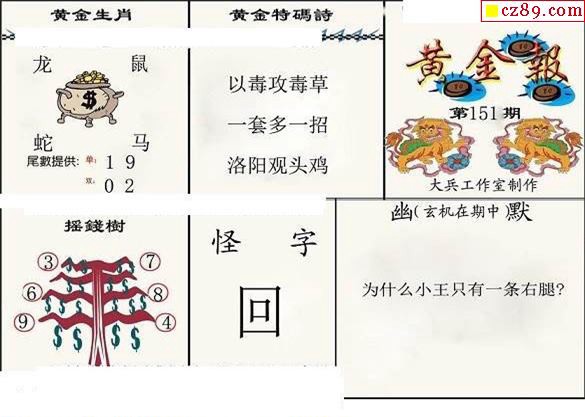 cz89.com
黄金生肖
龙 鼠
$
蛇 马
尾數提供：单：1 9
双：0 2
黄金特碼詩
以毒攻毒草
一套多一招
洛阳观头鸡
黄金報
第151期
大兵工作室制作
摇錢樹
③ ⑦
⑥ ⑧
⑨ ④
怪 字
回
幽（玄机在期中）默
为什么小王只有一条右腿?